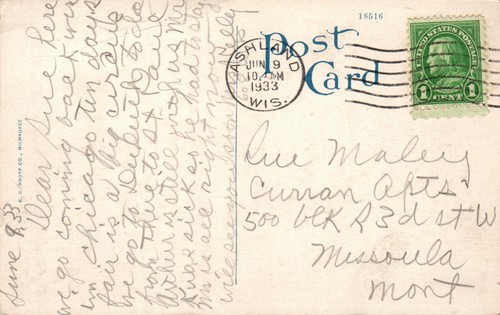 18516
Post
Card
ASHLAND
JUN 9
10 AM
1933
WIS.
UNITED STATES POSTAGE
1 CENT 1
E. C. KROPP CO., MILWAUKEE
June 9, 33
Dear Sue here
we go coming back
in Chicago ten days
fair is a big
we go to Duluth today
from there to St Paul
Arthur is still with us
was sick as he had today
is all right now
will see you soon Nelly
Sue Maley
Curran Apts.
500 blk 3d st W
Missoula
Mont